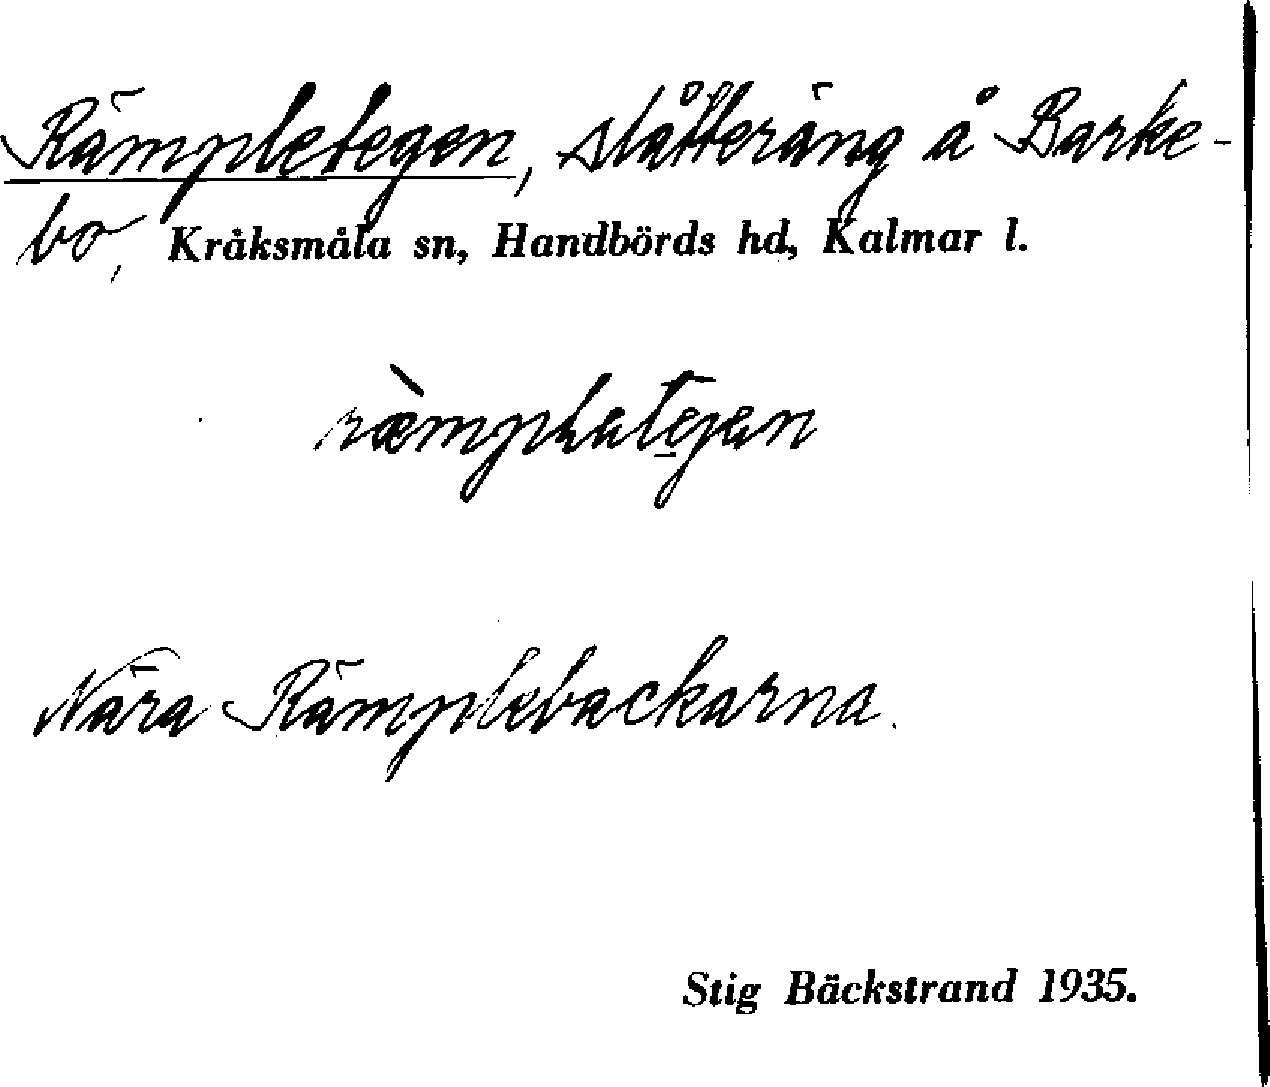 Rämpletegen, slåtteräng å Barke-
bo, Kråksmåla sn, Handbörds hd, Kalmar l.
Nära Rämplebackarna.
Stig Bäckstrand 1935.